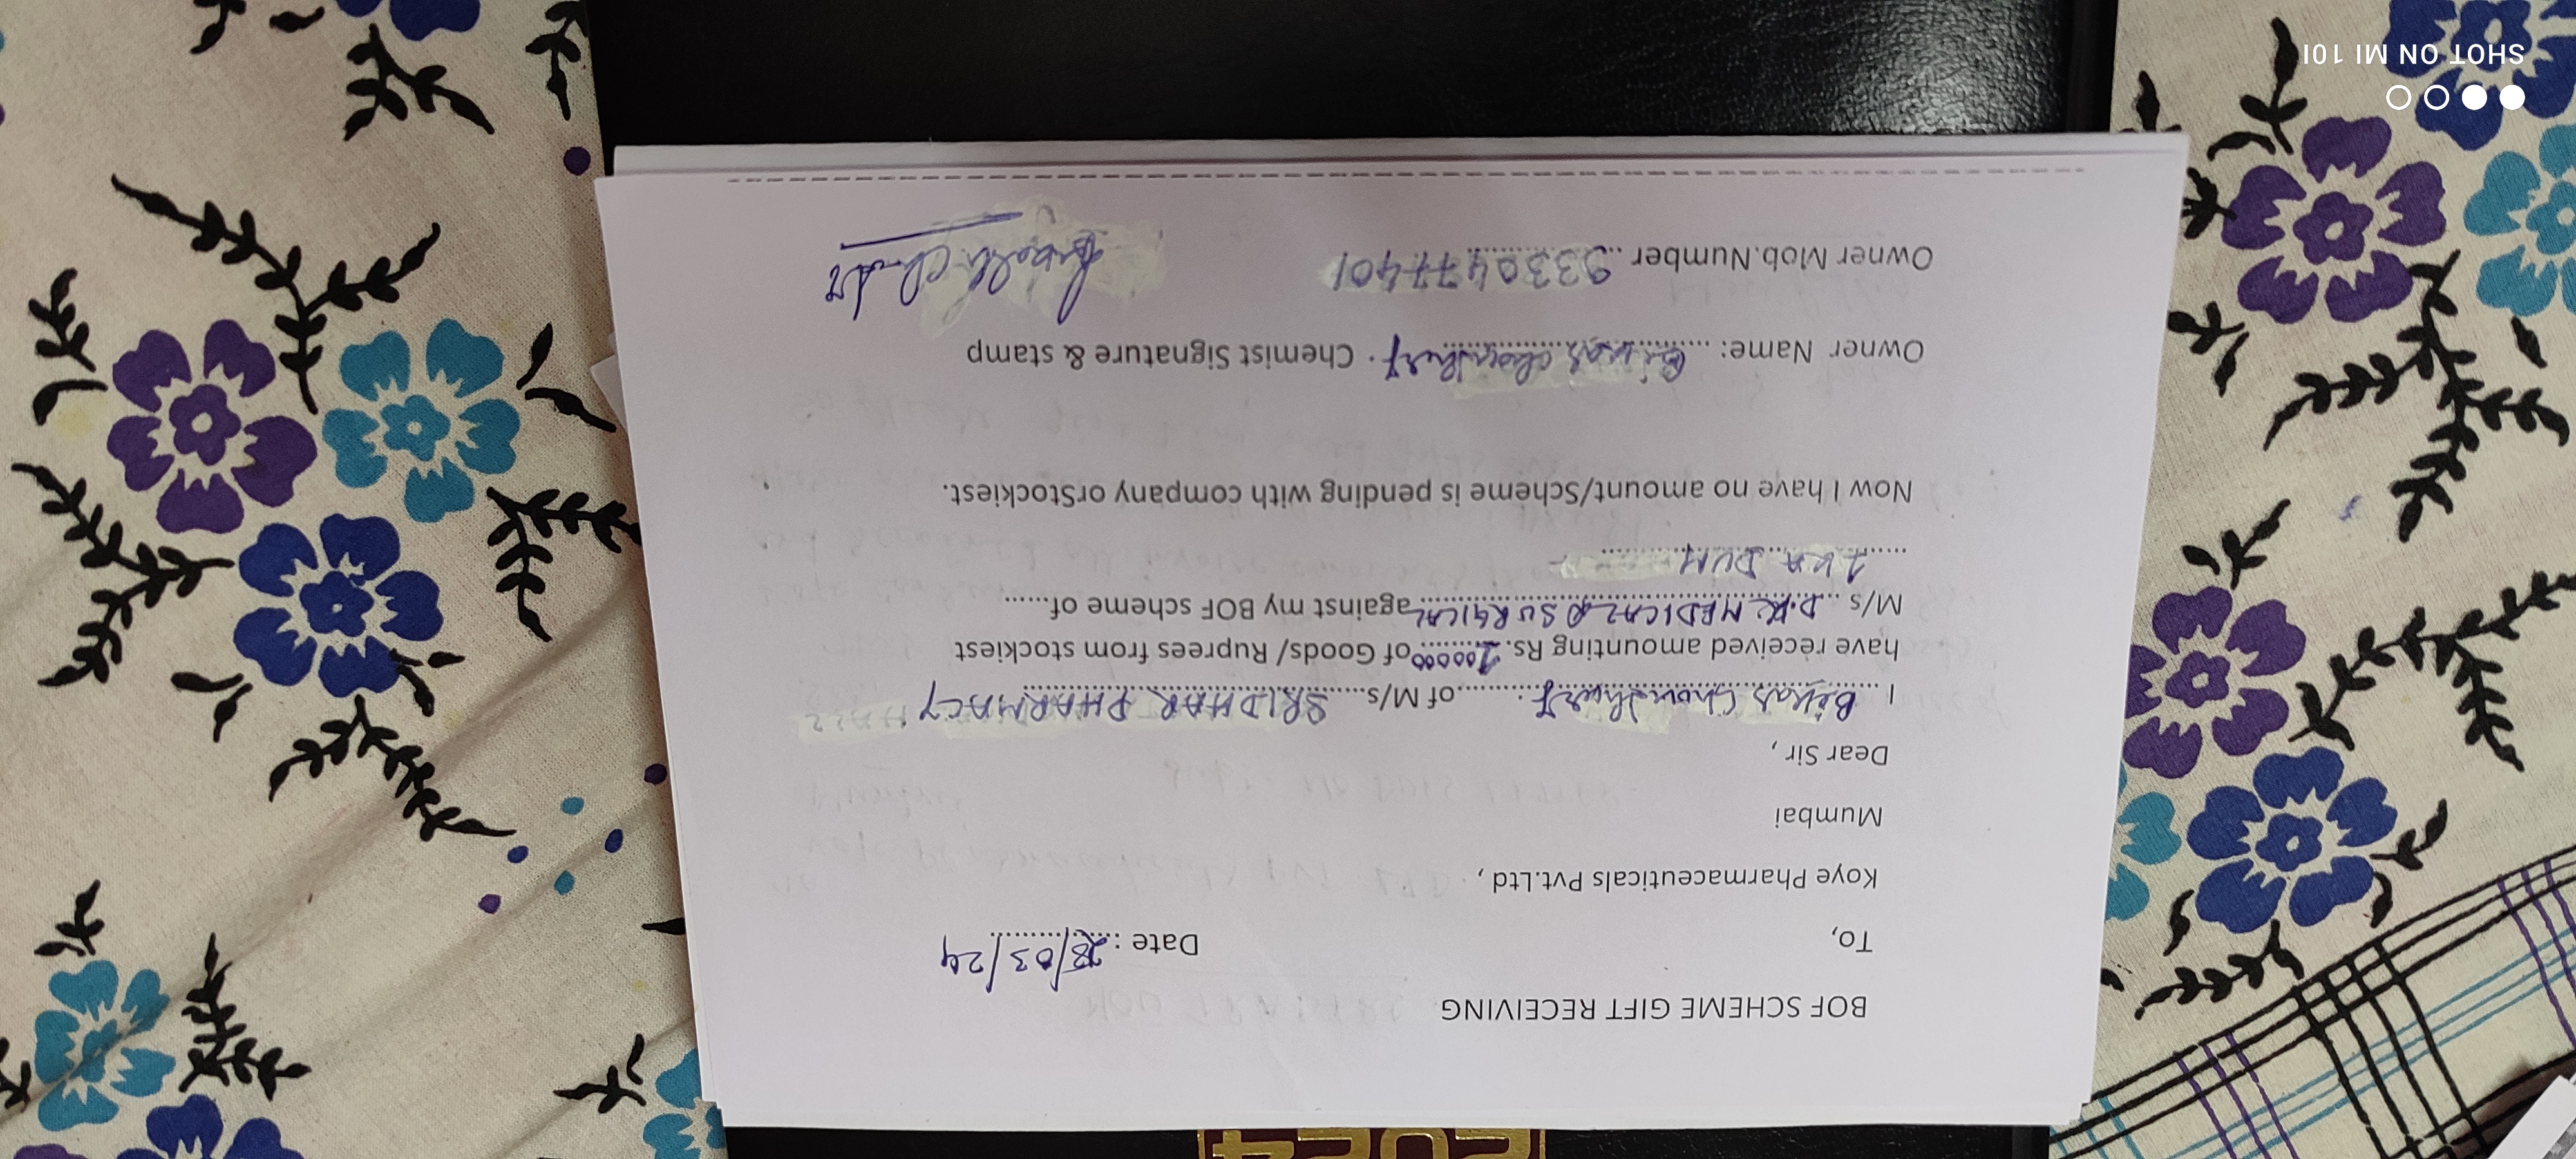 BOF SCHEME GIFT RECEIVING
To, Date : 28/03/24
Koye Pharmaceuticals Pvt.Ltd ,
Mumbai
Dear Sir ,
I Bikas Chowdhury of M/s SRIDHAR PHARMACY
have received amounting Rs. of Goods/ Ruprees from stockiest
M/s D.K. MEDICAL & SURGICAL against my BOF scheme of
DUM
Now I have no amount/Scheme is pending with company orStockiest.
Owner Name: Bikas Chowdhury Chemist Signature & stamp
Owner Mob.Number 9330477401
2024
SHOT ON MI 10I